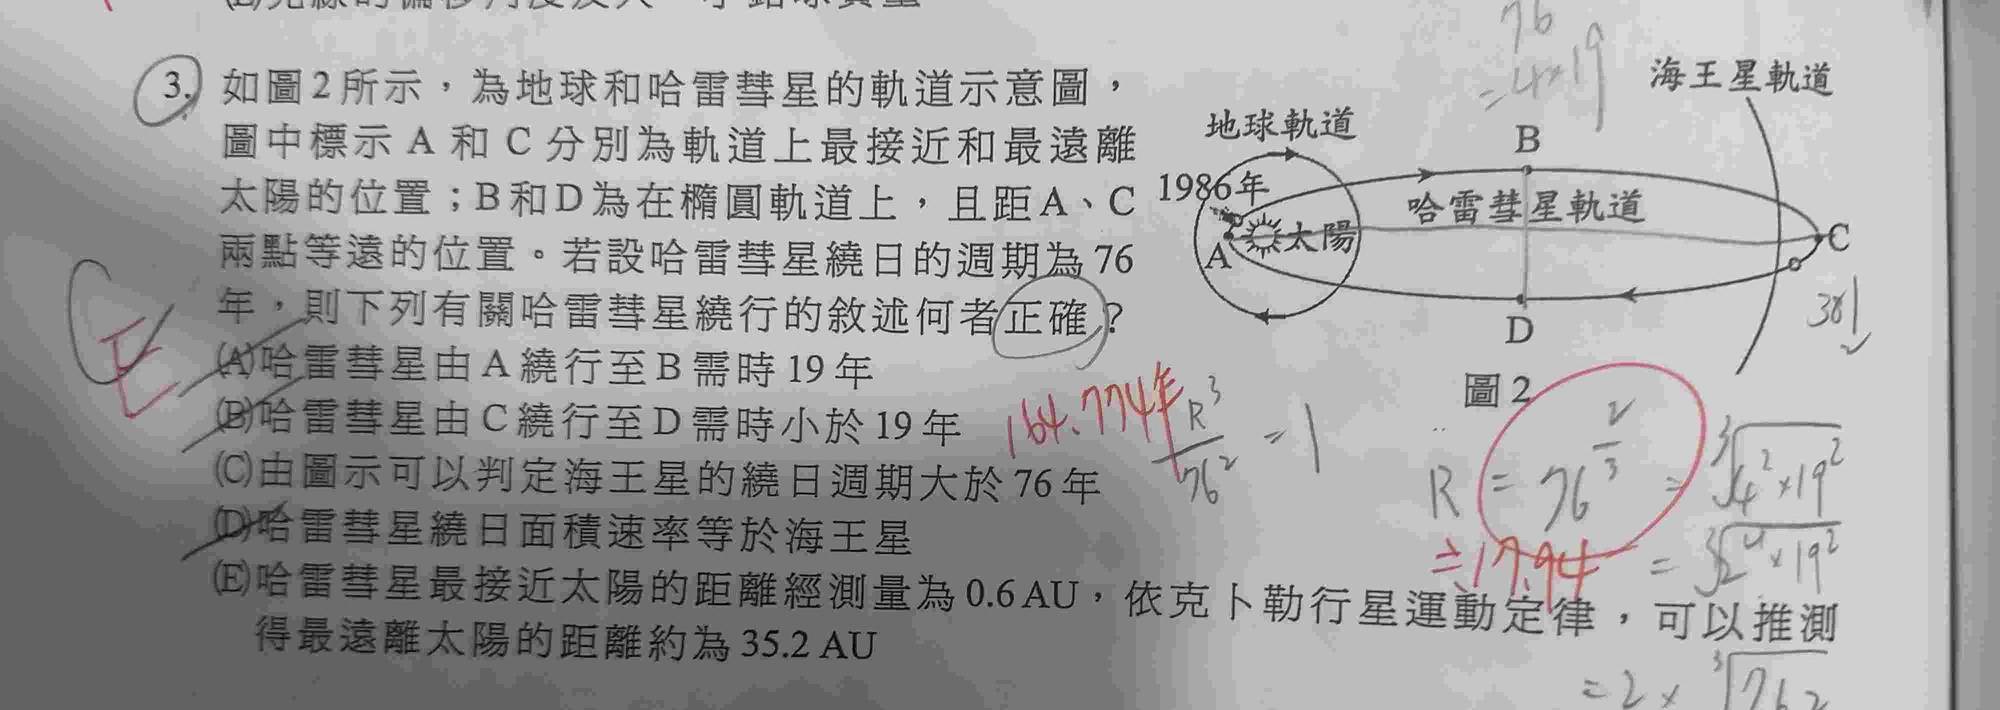 3. 如圖2所示，為地球和哈雷彗星的軌道示意圖，
圖中標示 A 和 C 分別為軌道上最接近和最遠離
太陽的位置；B和D為在橢圓軌道上，且距A、C
兩點等遠的位置。若設哈雷彗星繞日的週期為 76
年，則下列有關哈雷彗星繞行的敘述何者正確？
(A)哈雷彗星由 A 繞行至 B 需時 19 年
(B)哈雷彗星由 C 繞行至 D 需時小於 19 年
(C)由圖示可以判定海王星的繞日週期大於 76 年
(D)哈雷彗星繞日面積速率等於海王星
(E)哈雷彗星最接近太陽的距離經測量為 0.6 AU，依克卜勒行星運動定律，可以推測
得最遠離太陽的距離約為 35.2 AU
76
=4×19
海王星軌道
地球軌道
B
1986年
哈雷彗星軌道
太陽
A
C
D
圖2
E
164.774年
R³/76² = 1
R = 76^(2/3) = ∛(4²×19²)
≒17.94
= ∛(2⁴×19²)
= 2 × ∛